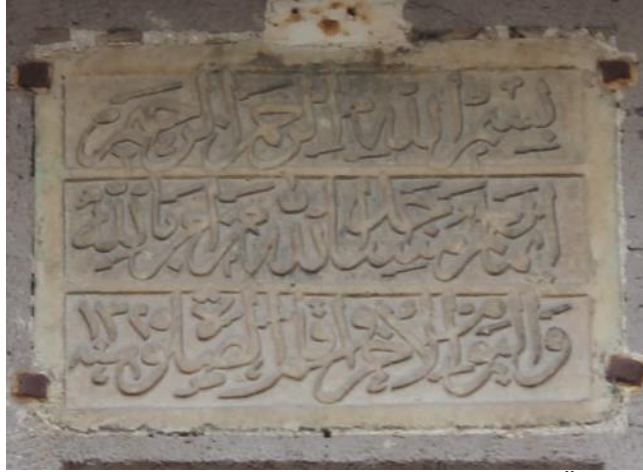 بسم الله الرحمن الرحيم
انما يعمر مساجد الله من امن بالله
واليوم الاخر واقام الصلوة سنه ١٣٢٠